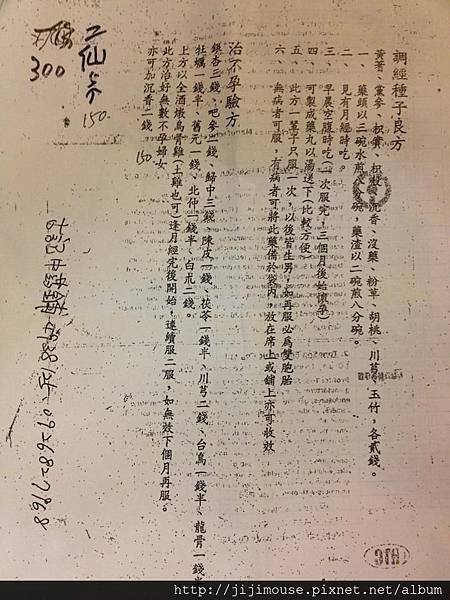 調經種子良方
黃耆、黨參、枳實、枳殼、沉香、沒藥、粉草、胡桃、川芎、玉竹，各貳錢。
一、藥頭以三碗水煎八分碗，藥渣以二碗煎八分碗。
二、見有月經時吃。
三、早晨空腹時吃(一次服完，三個月後始懷孕)
四、可製成藥丸以湯送下(比較方便)
五、此方一輩子只服一次，以後皆生男，如再服必為雙胞胎
六、無病者可服，有病者可將此藥備於袋內，放在席上或舖上亦可收效
治不孕驗方
銀杏三錢、巴參一錢、歸中三錢、陳皮一錢、茯苓一錢半、川芎二錢、台烏一錢半、龍骨一錢半
牡蠣一錢半、舊元一錢、北仲一錢半、白朮二錢。
上方以全酒燉烏骨雞(土雞也可)逢月經完後開始，連續服二服，如無效下個月再服。
此方治好無數不孕婦女
亦可加沉香二錢
150.
二仙膏
150.
300
http://jijimouse.pixnet.net/album